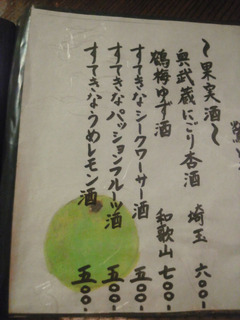 ～果実酒～
奥武蔵にごり杏酒 埼玉 六〇〇-
鶴梅ゆず酒 和歌山 七〇〇-
すてきなシークワーサー酒 五〇〇-
すてきなパッションフルーツ酒 五〇〇-
すてきなうめレモン酒 五〇〇-